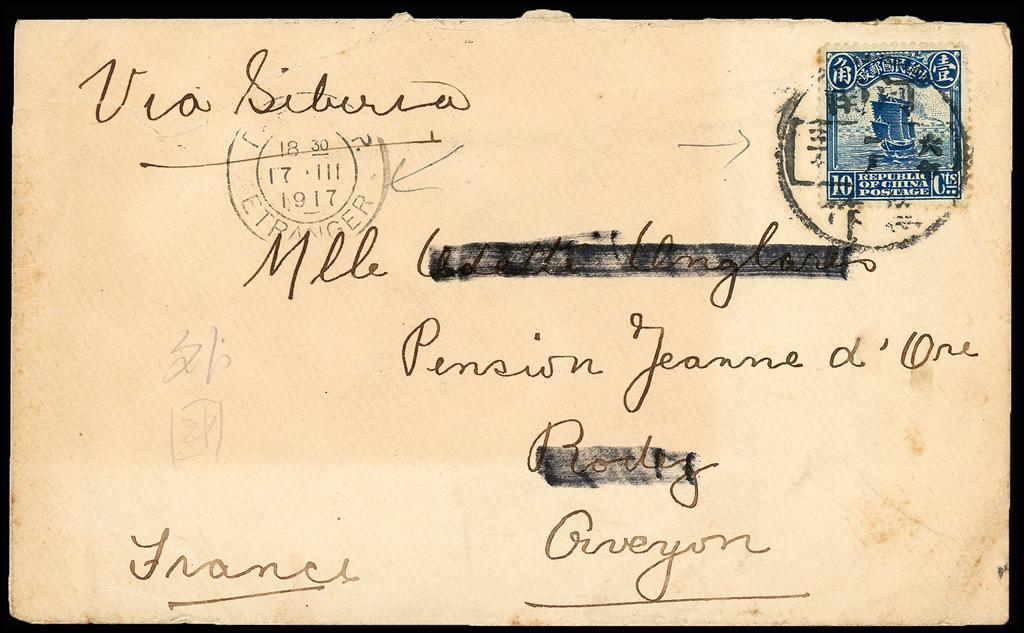 Via Siberia
壹 中華民國郵政 角
10 REPUBLIC OF CHINA POSTAGE Cts
18 30
17 · III
1917
ETRANGER
Mlle
Pension Jeanne d'Ore
Rodez
Aveyon
France
外
国